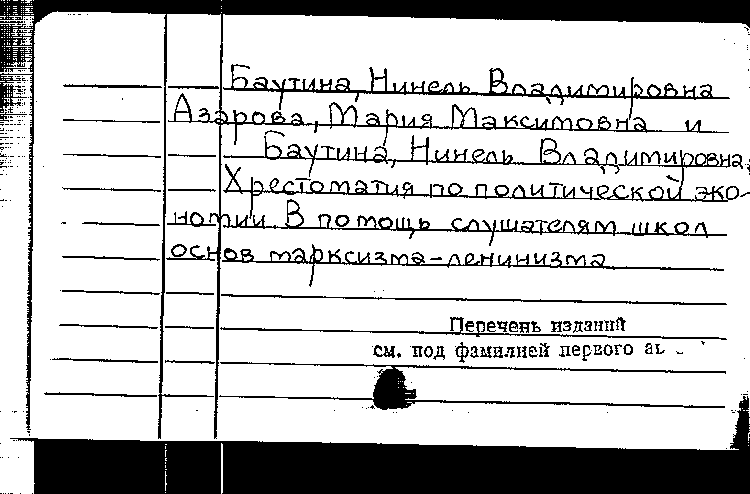 Баутина, Нинель Владимировна
Азарова, Мария Максимовна и
Баутина, Нинель Владимировна,
Хрестоматия по политической эко-
номии В помощь слушателям школ
основ марксизма-ленинизма
Перечень изданий
см. под фамилией первого